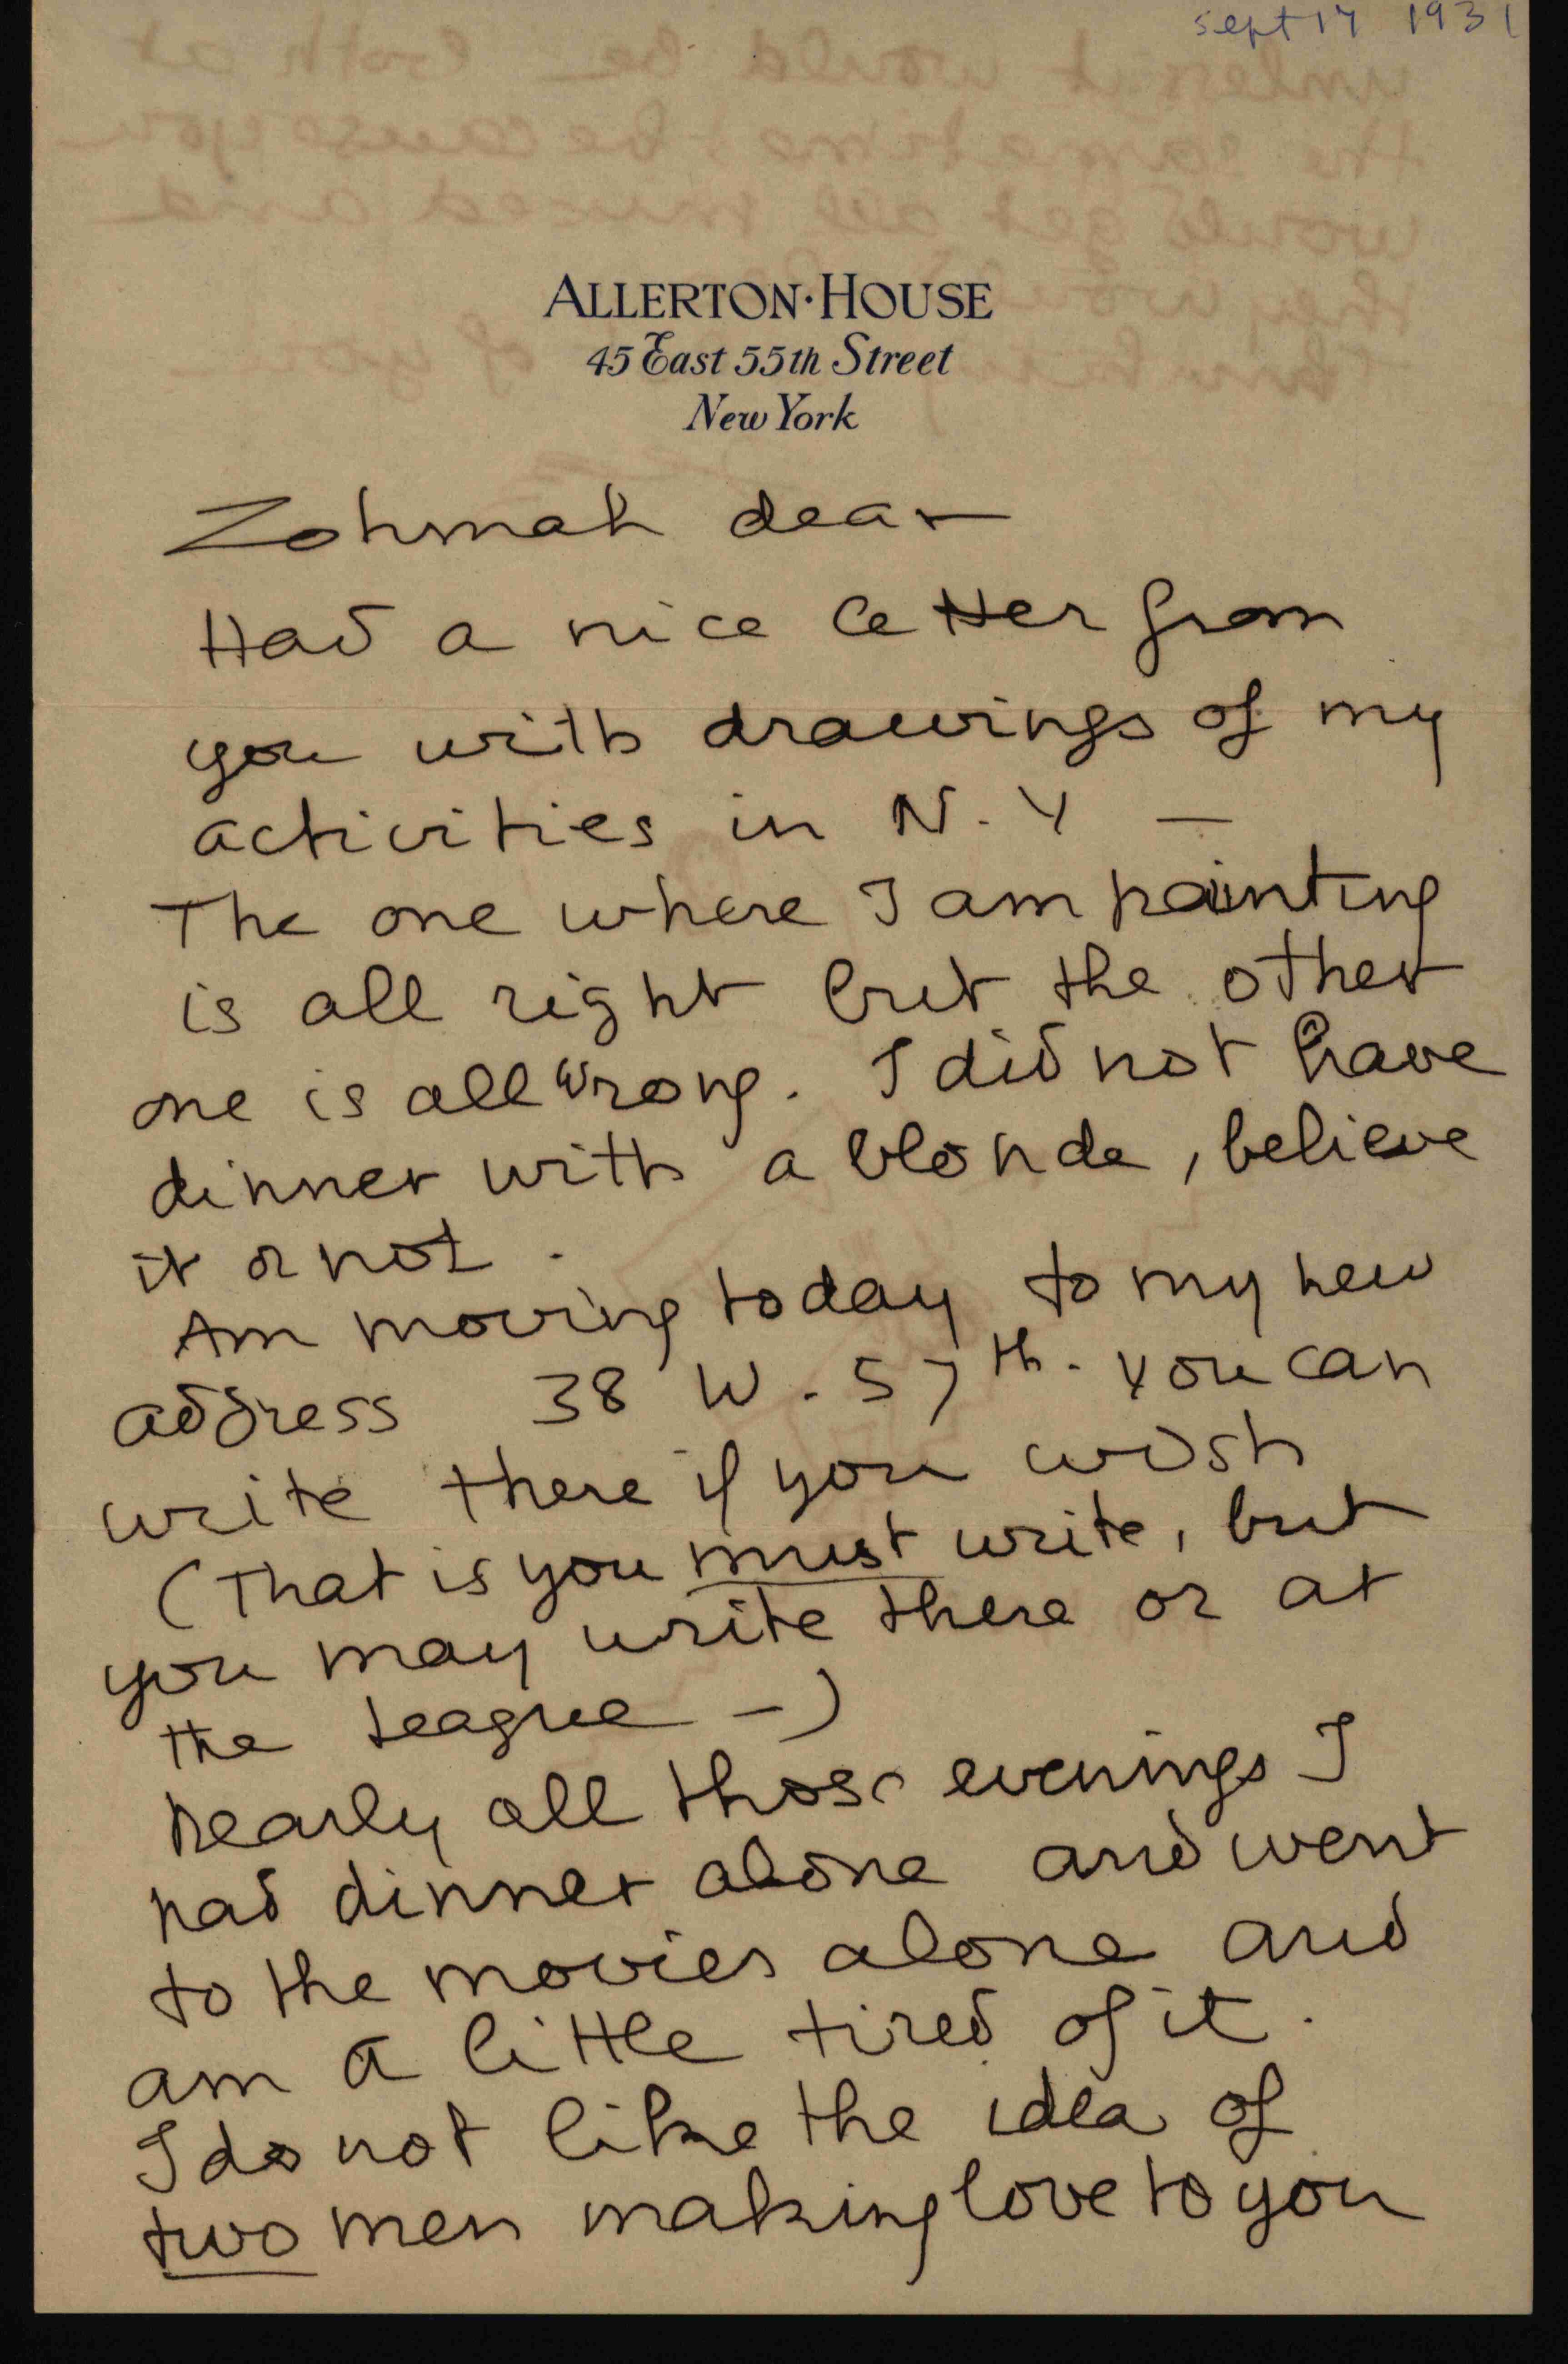 sept 17 1931
ALLERTON·HOUSE
45 East 55th Street
New York
Zohmah dear
Had a nice letter from
you with drawings of my
activities in N.Y —
The one where I am painting
is all right but the other
one is all wrong. I did not have
dinner with a blonde, believe
it or not.
Am moving today to my new
address 38 W. 57th. You can
write there if you wish
(That is you must write, but
you may write there or at
the League –)
Nearly all those evenings I
had dinner alone and went
to the movies alone and
am a little tired of it.
I do not like the idea of
two men making love to you